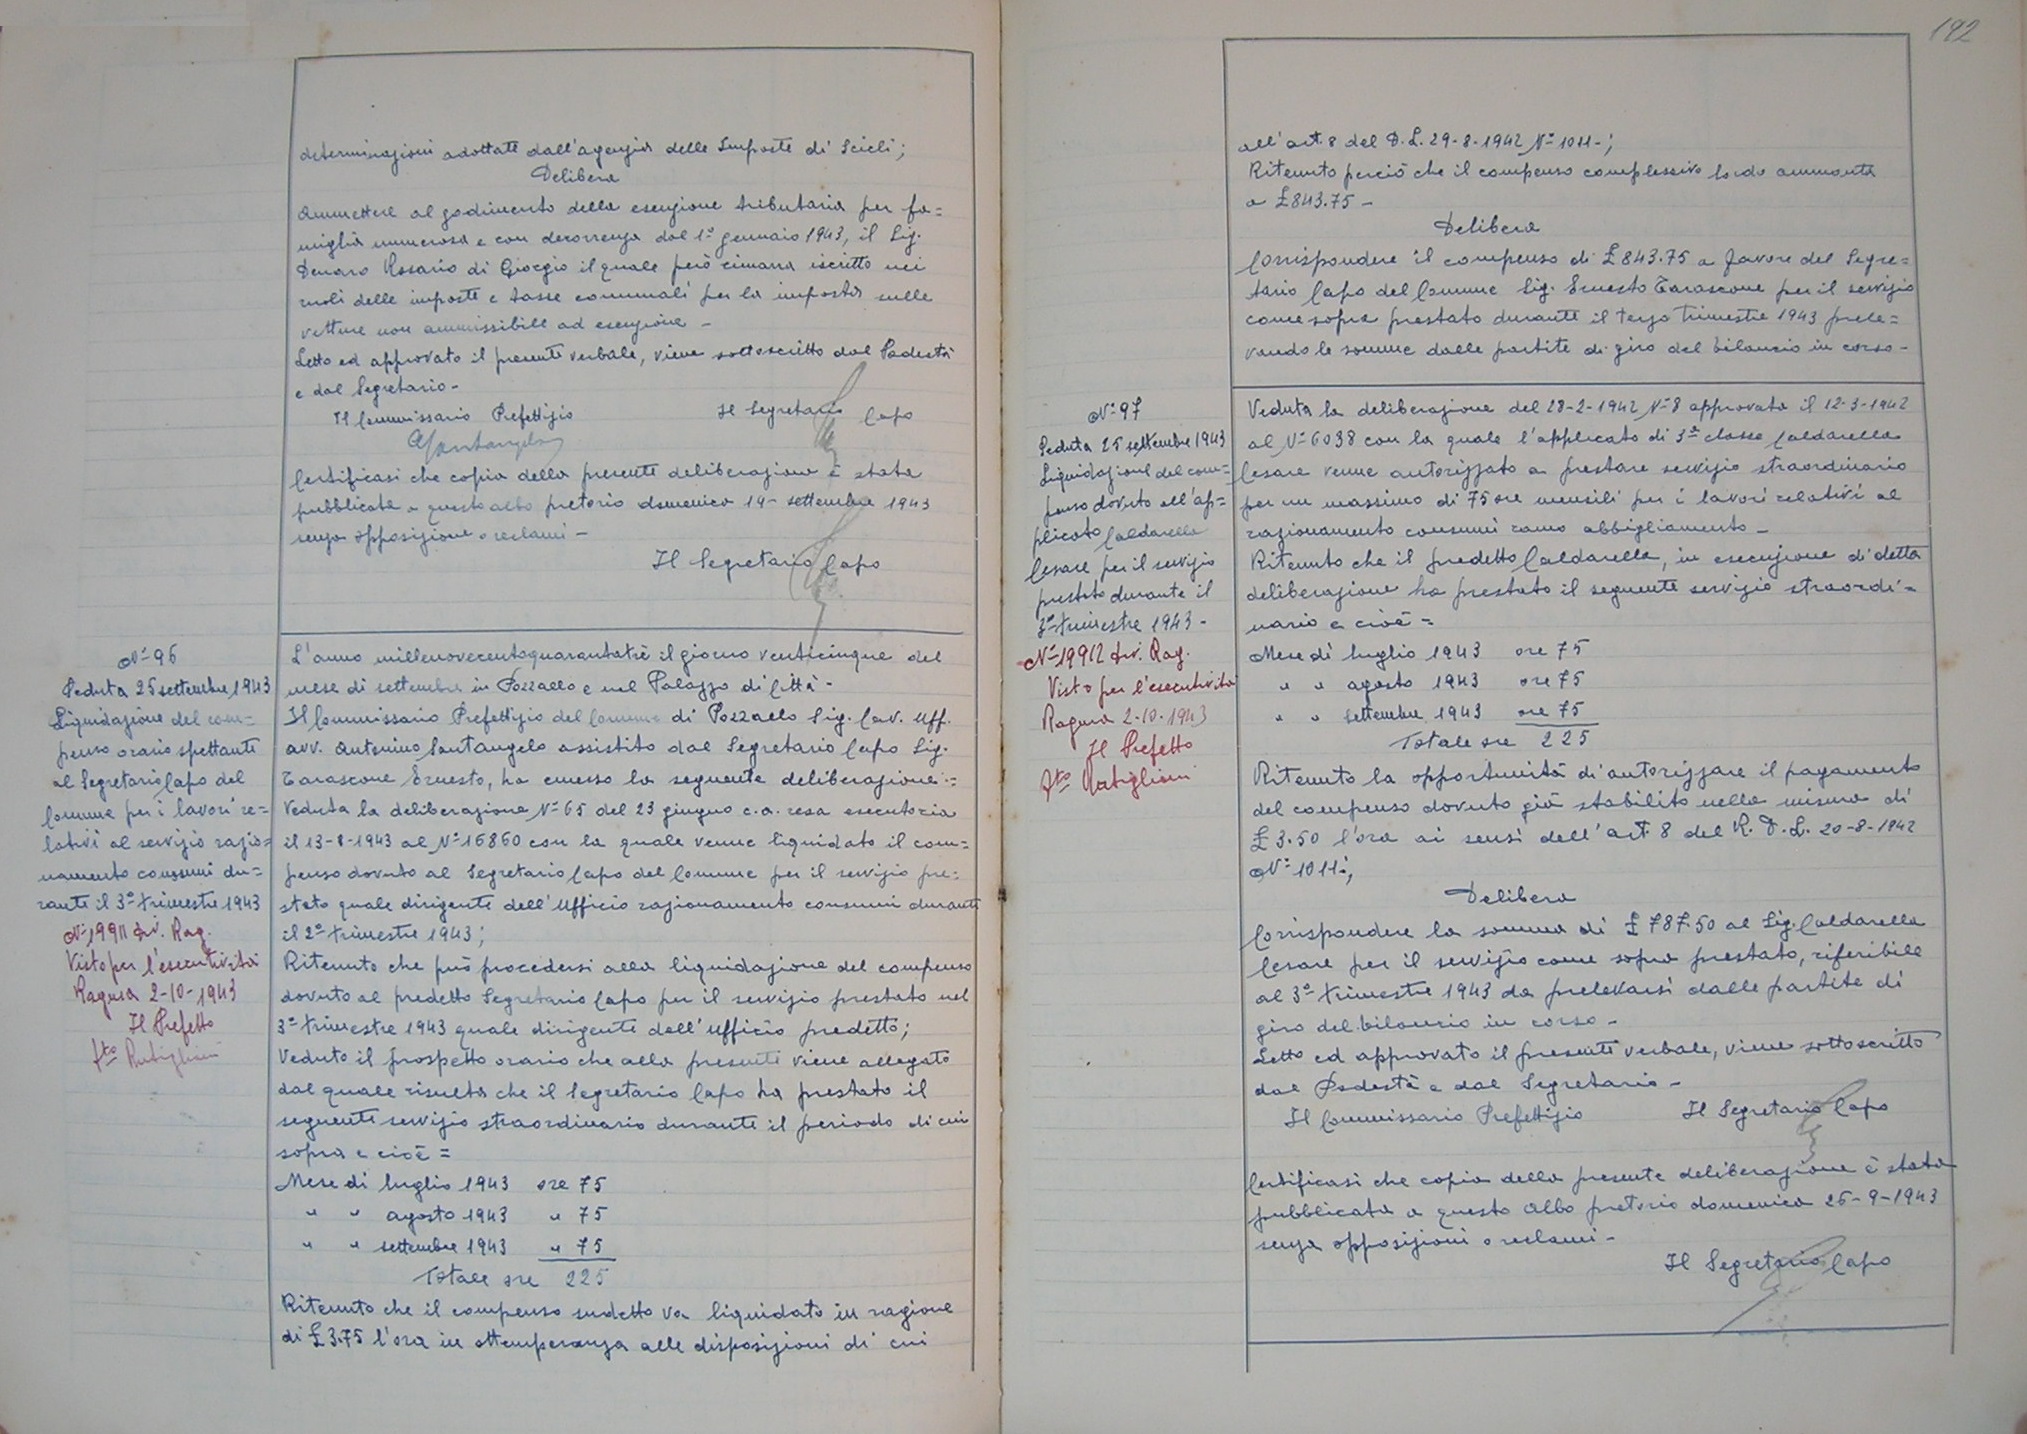 determinazioni adottate dall'agenzia delle Imposte di Scicli;
Delibera
Ammettere al godimento della esenzione tributaria per fa=
miglia numerosa e con decorrenza dal 1° gennaio 1943, il Sig.
Denaro Rosario di Giorgio il quale però rimarrà iscritto nei
ruoli delle imposte e tasse comunali per la imposta sulle
vetture non ammissibile ad esenzione -
Letto ed approvato il presente verbale, viene sottoscritto dal Podestà
e dal Segretario -
Il Commissario Prefettizio Il Segretario Capo
ASantangelo
Certificasi che copia della presente deliberazione è stata
pubblicata a questo albo pretorio domenica 19- settembre 1943
senza opposizione o reclami -
Il Segretario Capo
N° 96
Seduta 25 settembre 1943
Liquidazione del com=
penso orario spettante
al Segretario Capo del
Comune per i lavori re=
lativi al servizio razio=
namento consumi du=
rante il 3° trimestre 1943
N° 19911 Div. Rag.
Visto per l'esecutività
Ragusa 2-10-1943
Il Prefetto
fto Ratiglioni
L'anno millenovecentoquarantatrè il giorno venticinque del
mese di settembre in Pozzallo e nel Palazzo di Città -
Il Commissario Prefettizio del Comune di Pozzallo Sig. Cav. Uff.
avv. Antonino Santangelo assistito dal Segretario Capo Sig.
Tarascone Ernesto, ha emesso la seguente deliberazione:=
Veduta la deliberazione N° 65 del 23 giugno c.a. resa esecutoria
il 13-8-1943 al N° 16860 con la quale venne liquidato il com=
penso dovuto al Segretario Capo del Comune per il servizio pre=
stato quale dirigente dell'Ufficio razionamento consumi durante
il 2° trimestre 1943;
Ritenuto che può procedersi alla liquidazione del compenso
dovuto al predetto Segretario Capo per il servizio prestato nel
3° trimestre 1943 quale dirigente dell'Ufficio predetto;
Veduto il prospetto orario che alla presente viene allegato
dal quale risulta che il Segretario Capo ha prestato il
seguente servizio straordinario durante il periodo di cui
sopra e cioè =
Mese di luglio 1943 ore 75
" " agosto 1943 " 75
" " settembre 1943 " 75
Totale ore 225
Ritenuto che il compenso sudetto va liquidato in ragione
di £ 3.75 l'ora in ottemperanza alle disposizioni di cui
192
all'art. 8 del D.L. 29-8-1942 N° 1011-;
Ritenuto perciò che il compenso complessivo lordo ammonta
a £ 843.75 -
Delibera
Corrispondere il compenso di £ 843.75 a favore del Segre=
tario Capo del Comune Sig. Ernesto Tarascone per il servizio
come sopra prestato durante il terzo trimestre 1943 prele=
vando le somme dalle partite di giro del bilancio in corso -
N° 97
Seduta 25 settembre 1943
Liquidazione del com=
penso dovuto all'ap=
plicato Caldarella
Cesare per il servizio
prestato durante il
3° trimestre 1943 -
N° 19912 Div. Rag.
Visto per l'esecutività
Ragusa 2-10-1943
Il Prefetto
fto Ratiglioni
Veduta la deliberazione del 28-2-1942 N° 8 approvata il 12-3-1942
al N° 6038 con la quale l'applicato di 3ª classe Caldarella
Cesare venne autorizzato a prestare servizio straordinario
per un massimo di 75 ore mensili per i lavori relativi al
razionamento consumi ramo abbigliamento -
Ritenuto che il predetto Caldarella, in esecuzione di detta
deliberazione ha prestato il seguente servizio straordi=
nario e cioè =
Mese di luglio 1943 ore 75
" " agosto 1943 ore 75
" " settembre 1943 ore 75
Totale ore 225
Ritenuto la opportunità di autorizzare il pagamento
del compenso dovuto già stabilito nella misura di
£ 3.50 l'ora ai sensi dell'art. 8 del R. D. L. 20-8-1942
N° 1011:;
Delibera
Corrispondere la somma di £ 787.50 al Sig. Caldarella
Cesare per il servizio come sopra prestato, riferibile
al 3° trimestre 1943 da prelevarsi dalle partite di
giro del bilancio in corso -
Letto ed approvato il presente verbale, viene sottoscritto
dal Podestà e dal Segretario -
Il Commissario Prefettizio Il Segretario Capo
Certificasi che copia della presente deliberazione è stata
pubblicata a questo Albo pretorio domenica 26-9-1943
senza opposizioni o reclami -
Il Segretario Capo